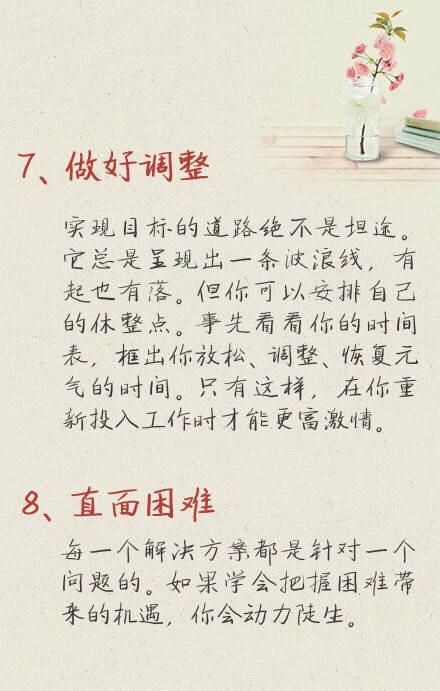 7、做好调整
实现目标的道路绝不是坦途。
它总是呈现出一条波浪线，有
起也有落。但你可以安排自己
的休整点。事先看看你的时间
表，框出你放松、调整、恢复元
气的时间。只有这样，在你重
新投入工作时才能更富激情。
8、直面困难
每一个解决方案都是针对一个
问题的。如果学会把握困难带
来的机遇，你会动力陡生。